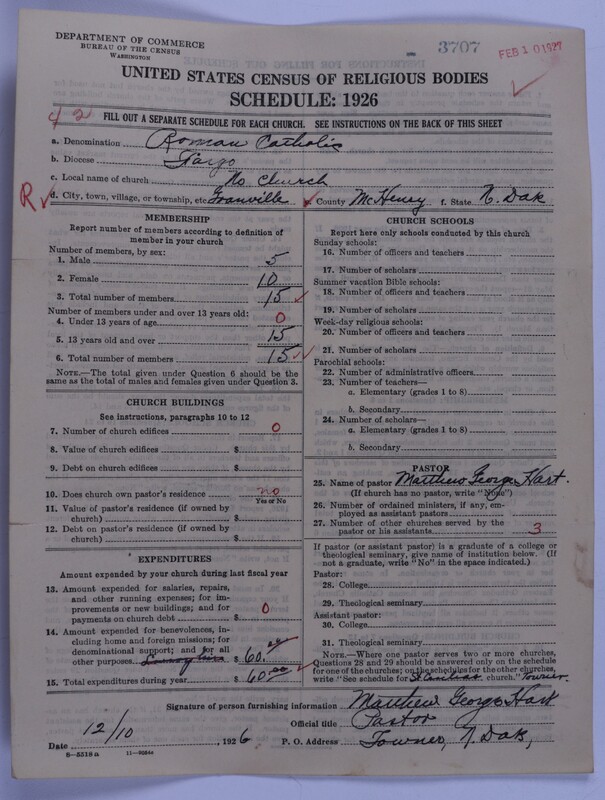 DEPARTMENT OF COMMERCE
BUREAU OF THE CENSUS
WASHINGTON
3707
FEB 10 1927
UNITED STATES CENSUS OF RELIGIOUS BODIES
SCHEDULE: 1926
FILL OUT A SEPARATE SCHEDULE FOR EACH CHURCH. SEE INSTRUCTIONS ON THE BACK OF THIS SHEET
a. Denomination Roman Catholic
b. Diocese Fargo
c. Local name of church No Church
R d. City, town, village, or township, etc. Granville County McHenry f. State N. Dak
MEMBERSHIP
Report number of members according to definition of
member in your church
Number of members, by sex:
1. Male 5
2. Female 10
3. Total number of members 15
Number of members under and over 13 years old:
4. Under 13 years of age 0
5. 13 years old and over 15
6. Total number of members 15
NOTE.—The total given under Question 6 should be
same as the total of males and females given under Question 3.
CHURCH BUILDINGS
See instructions, paragraphs 10 to 12
7. Number of church edifices 0
8. Value of church edifices $
9. Debt on church edifices $
10. Does church own pastor's residence no
Yes or No
11. Value of pastor's residence (if owned by
church) $
12. Debt on pastor's residence (if owned by
church) $
EXPENDITURES
Amount expended by your church during last fiscal year
13. Amount expended for salaries, repairs,
and other running expenses; for im-
provements or new buildings; and for
payments on church debt $ 0
14. Amount expended for benevolences, in-
cluding home and foreign missions; for
denominational support; and for all
other purposes $ 60.00
15. Total expenditures during year $ 60.00
CHURCH SCHOOLS
Report here only schools conducted by this church
Sunday schools:
16. Number of officers and teachers
17. Number of scholars
Summer vacation Bible schools:
18. Number of officers and teachers
19. Number of scholars
Week-day religious schools:
20. Number of officers and teachers
21. Number of scholars
Parochial schools:
22. Number of administrative officers
23. Number of teachers—
a. Elementary (grades 1 to 8)
b. Secondary
24. Number of scholars—
a. Elementary (grades 1 to 8)
b. Secondary
PASTOR
25. Name of pastor Matthew George Hart.
(If church has no pastor, write "None")
26. Number of ordained ministers, if any, em-
ployed as assistant pastors
27. Number of other churches served by the
pastor or his assistants 3
If pastor (or assistant pastor) is a graduate of a college or
theological seminary, give name of institution below. (If
not a graduate, write "No" in the space indicated.)
Pastor:
28. College
29. Theological seminary
Assistant pastor:
30. College
31. Theological seminary
NOTE.—Where one pastor serves two or more churches,
Questions 28 and 29 should be answered only on the schedule
for one of the churches; on the schedules for the other churches,
write "See schedule for St. Cecilias church." Towner
Signature of person furnishing information Matthew George Hart
Official title Pastor
Date 12/10, 1926 P. O. Address Towner, N. Dak,
8—5518 a